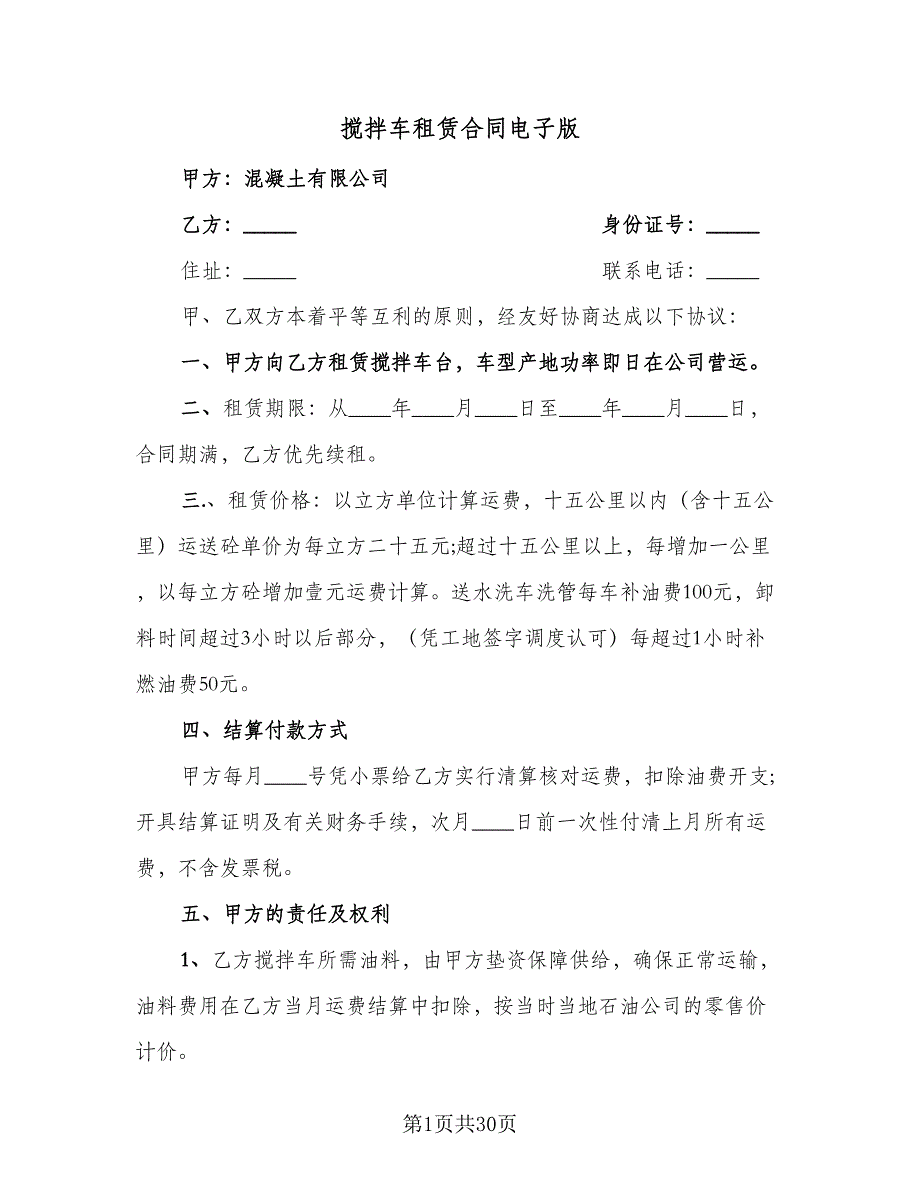 搅拌车租赁合同电子版
甲方：混凝土有限公司
乙方：_____ 身份证号：_____
住址：_____ 联系电话：_____
甲、乙双方本着平等互利的原则，经友好协商达成以下协议：
一、甲方向乙方租赁搅拌车台，车型产地功率即日在公司营运。
二、租赁期限：从____年____月____日至____年____月____日，
合同期满，乙方优先续租。
三.、租赁价格：以立方单位计算运费，十五公里以内（含十五公
里）运送砼单价为每立方二十五元;超过十五公里以上，每增加一公里
，以每立方砼增加壹元运费计算。送水洗车洗管每车补油费100元，卸
料时间超过3小时以后部分，（凭工地签字调度认可）每超过1小时补
燃油费50元。
四、结算付款方式
甲方每月____号凭小票给乙方实行清算核对运费，扣除油费开支;
开具结算证明及有关财务手续，次月____日前一次性付清上月所有运
费，不含发票税。
五、甲方的责任及权利
1、乙方搅拌车所需油料，由甲方垫资保障供给，确保正常运输，
油料费用在乙方当月运费结算中扣除，按当时当地石油公司的零售价
计价。
第1页共30页